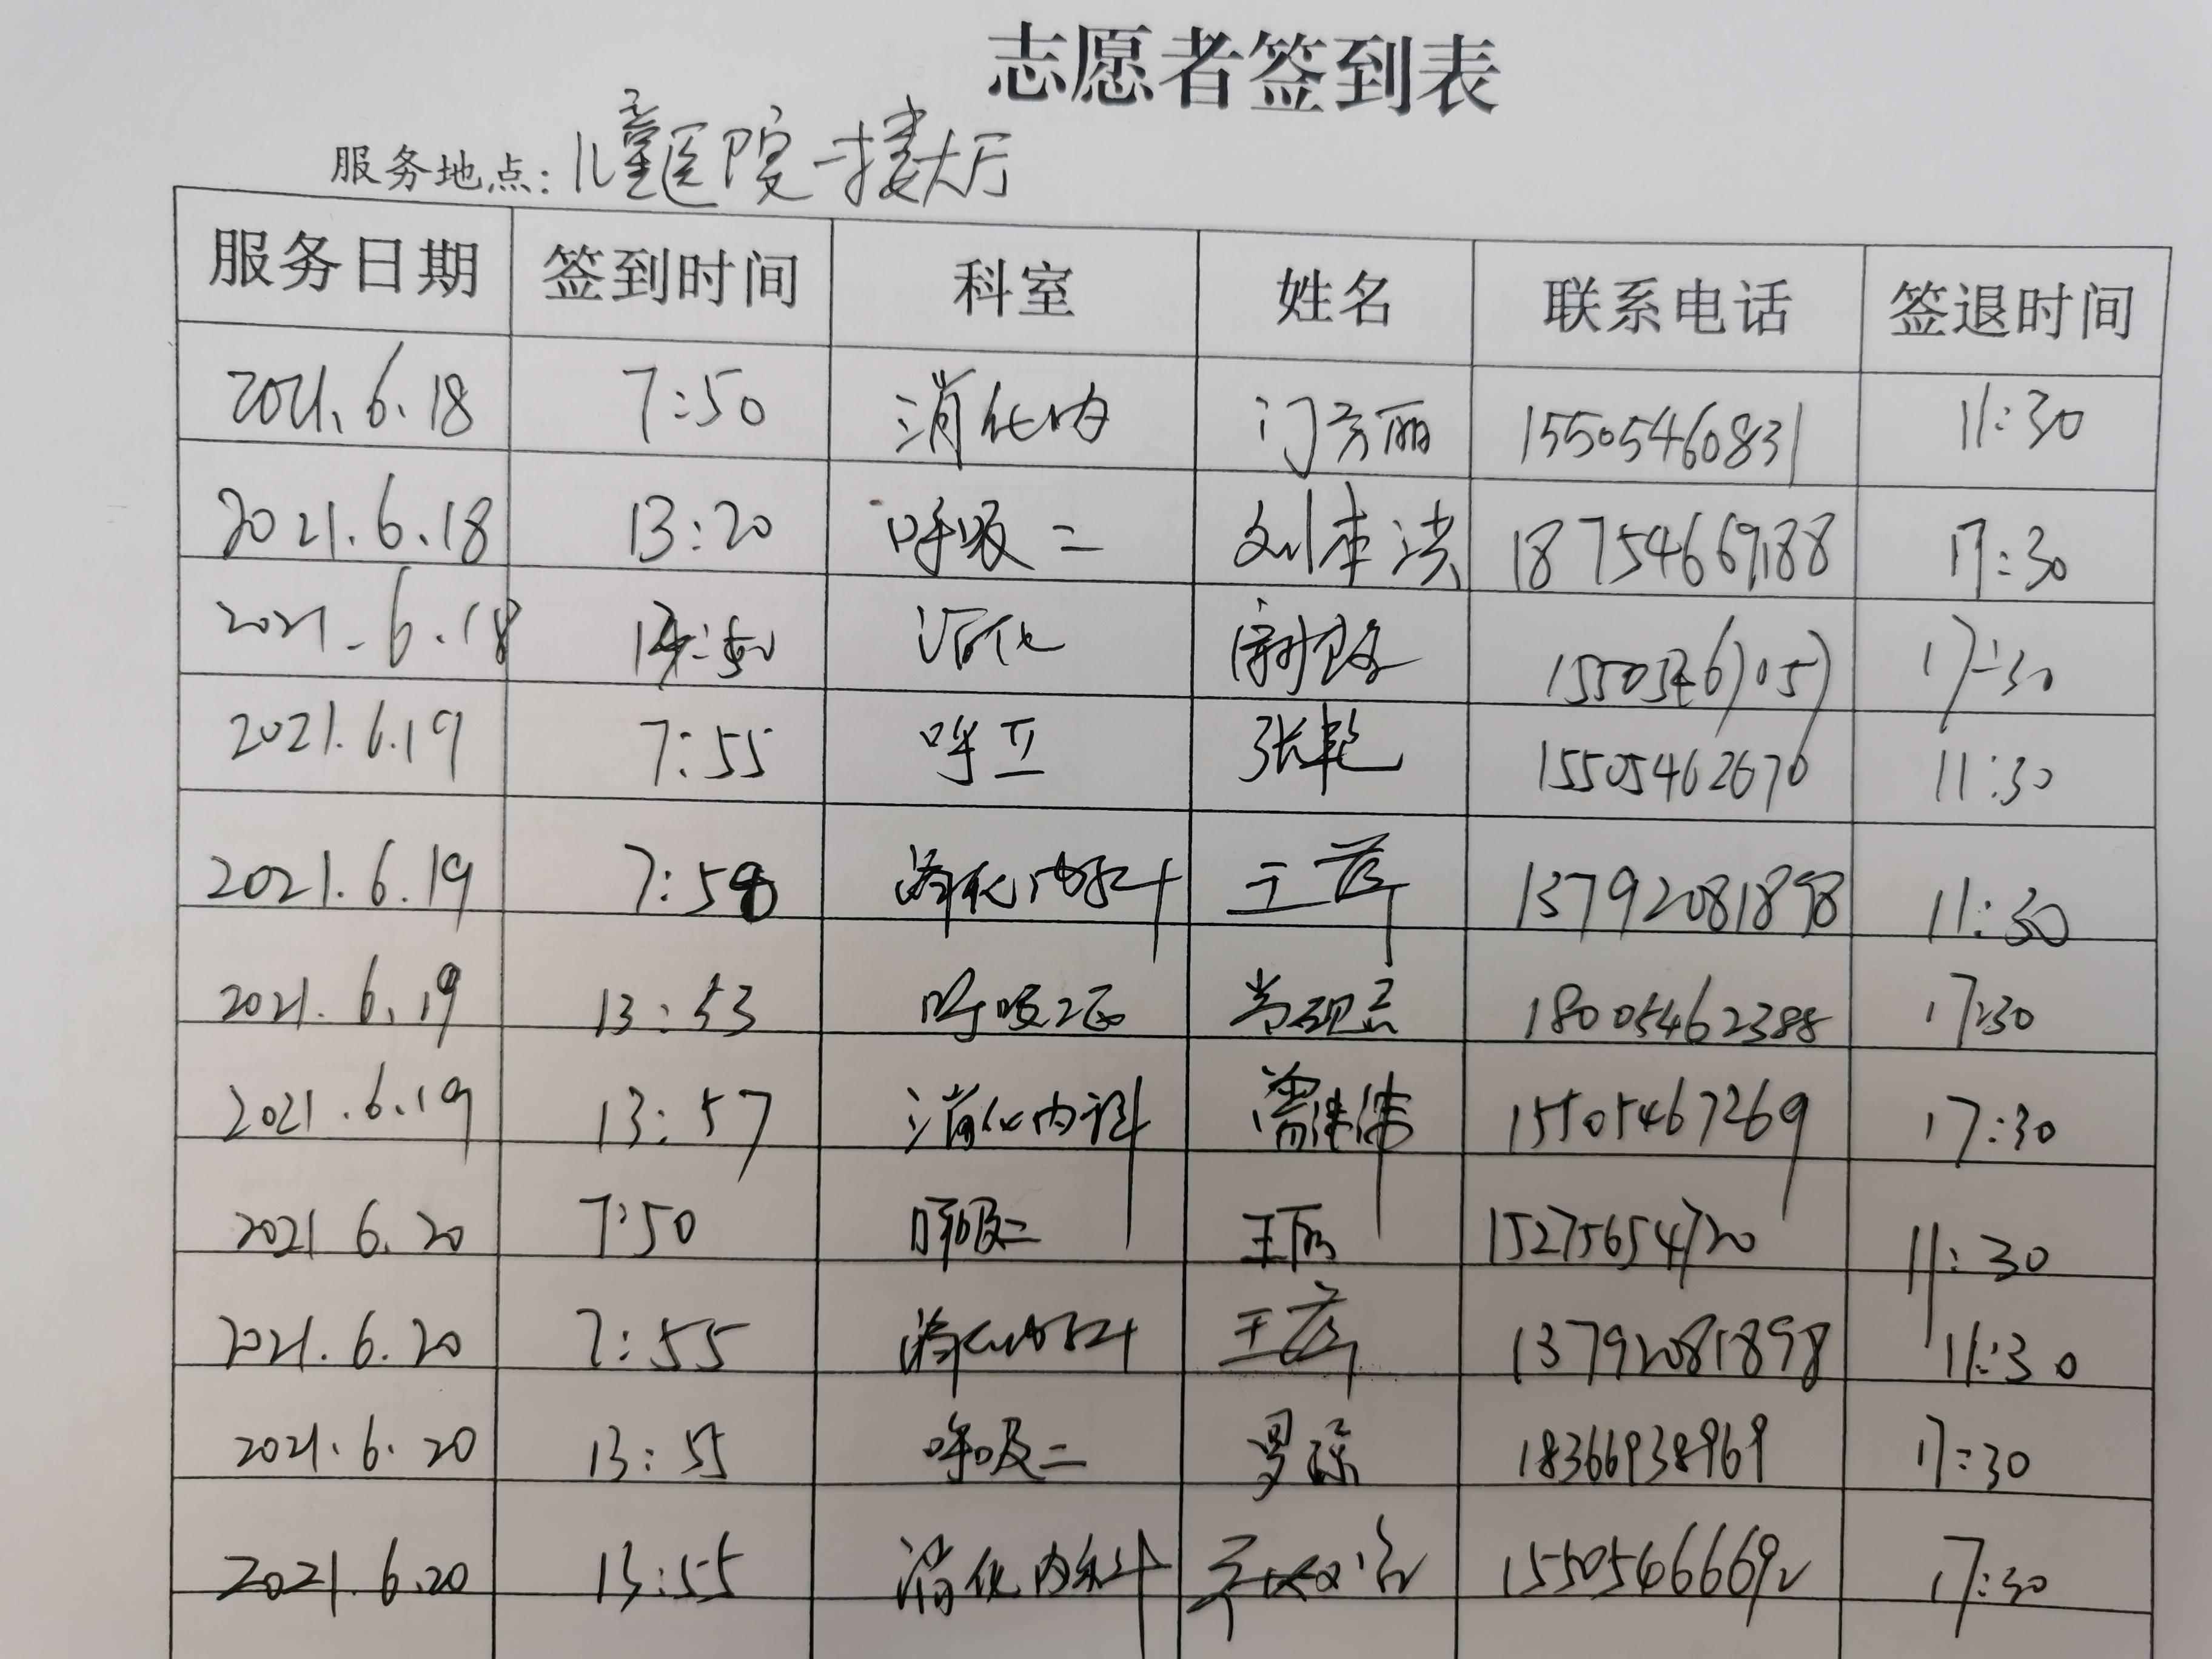 志愿者签到表
服务地点：儿童医院一楼大厅
服务日期 签到时间 科室 姓名 联系电话 签退时间
2021.6.18 7:50 消化内 门芳丽 15505460831 11:30
2021.6.18 13:20 呼吸二 刘 18754669188 17:30
2021.6.18 消化 17:30
2021.6.19 7:55 呼 张艳 15505462670 11:30
2021.6.19 7:58 消化内科 王芹 13792081898 11:30
2021.6.19 13:53 呼吸二区 18005462388 17:30
2021.6.19 13:57 消化内科 15505467269 17:30
2021 6.20 7:50 呼吸二 王丽 15275654720 11:30
2021.6.20 7:55 消化内科 王芹 13792081898 11:30
2021.6.20 13:55 呼吸二 罗琼 18366938969 17:30
2021.6.20 13:55 消化内科 15505466692 17:30